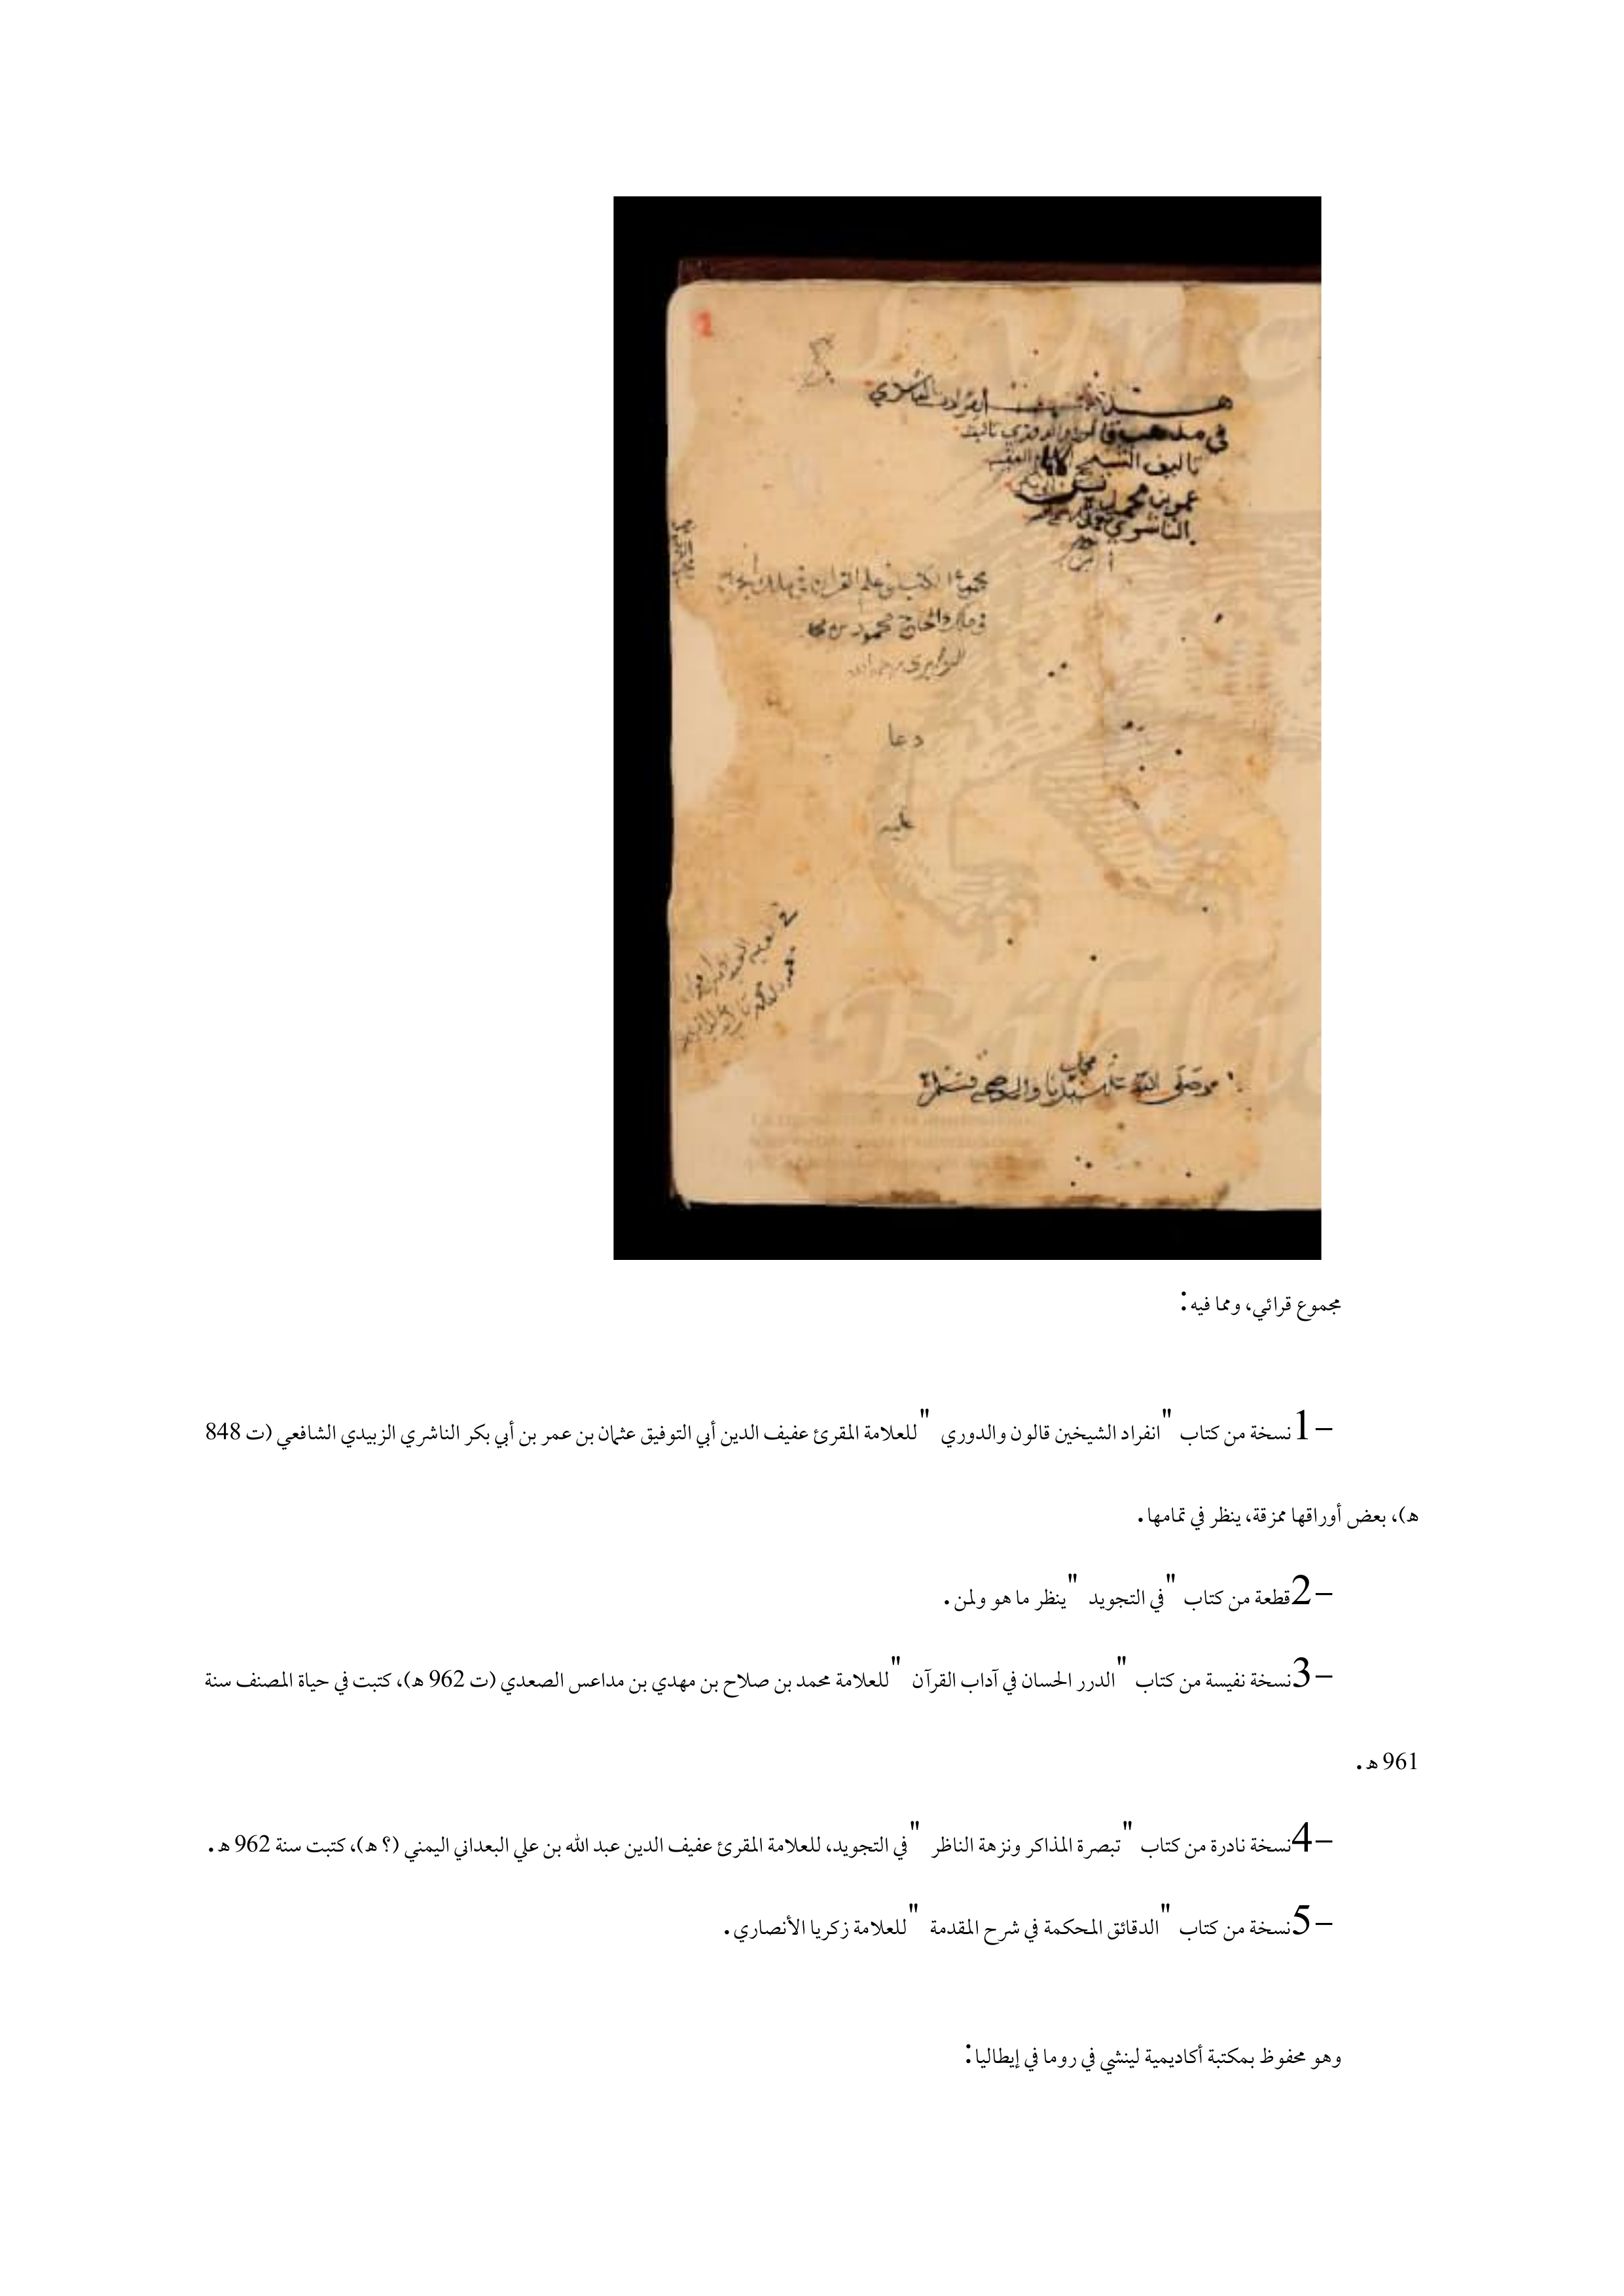 هذا
في مذهب قالون والدوري تأليف
تاليف الشيخ الإمام
عمر بن محمد
الناشري
في علم القران
محمود بن
دعا
عليه
محمد
وصلى الله على سيدنا واله وصحبه وسلم
مجموع قرائي، ومما فيه:
1- نسخة من كتاب "انفراد الشيخين قالون والدوري" للعلامة المقرئ عفيف الدين أبي التوفيق عثمان بن عمر بن أبي بكر الناشري الزبيدي الشافعي (ت 848
ه)، بعض أوراقها ممزقة، ينظر في تمامها.
2- قطعة من كتاب "في التجويد" ينظر ما هو ولمن.
3- نسخة نفيسة من كتاب "الدرر الحسان في آداب القرآن" للعلامة محمد بن صلاح بن مهدي بن مداعس الصعدي (ت 962 ه)، كتبت في حياة المصنف سنة
961 ه.
4- نسخة نادرة من كتاب "تبصرة المذاكر ونزهة الناظر" في التجويد، للعلامة المقرئ عفيف الدين عبد الله بن علي البعداني اليمني (؟ ه)، كتبت سنة 962 ه.
5- نسخة من كتاب "الدقائق المحكمة في شرح المقدمة" للعلامة زكريا الأنصاري.
وهو محفوظ بمكتبة أكاديمية لينشي في روما في إيطاليا: